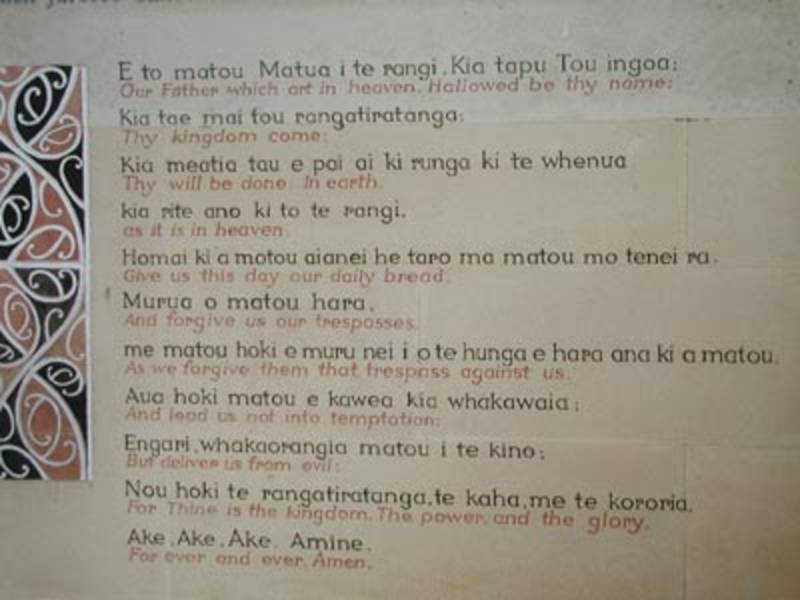 E to matou Matua i te rangi. Kia tapu Tou ingoa:
Our Father which art in heaven. Hallowed be thy name:
Kia tae mai tou rangatiratanga:
Thy kingdom come:
Kia meatia tau e pai ai ki runga ki te whenua
Thy will be done. In earth.
kia rite ano ki to te rangi.
as it is in heaven.
Homai ki a motou aianei he taro ma matou mo tenei ra.
Give us this day our daily bread.
Murua o matou hara,
And forgive us our trespasses.
me matou hoki e muru nei i o te hunga e hara ana ki a matou.
As we forgive them that trespass against us.
Aua hoki matou e kawea kia whakawaia;
And lead us not into temptation:
Engari, whakaorangia matou i te kino;
But deliver us from evil:
Nou hoki te rangatiratanga, te kaha, me te kororia.
For Thine is the kingdom. The power, and the glory.
Ake. Ake. Ake. Amine.
For ever and ever. Amen.